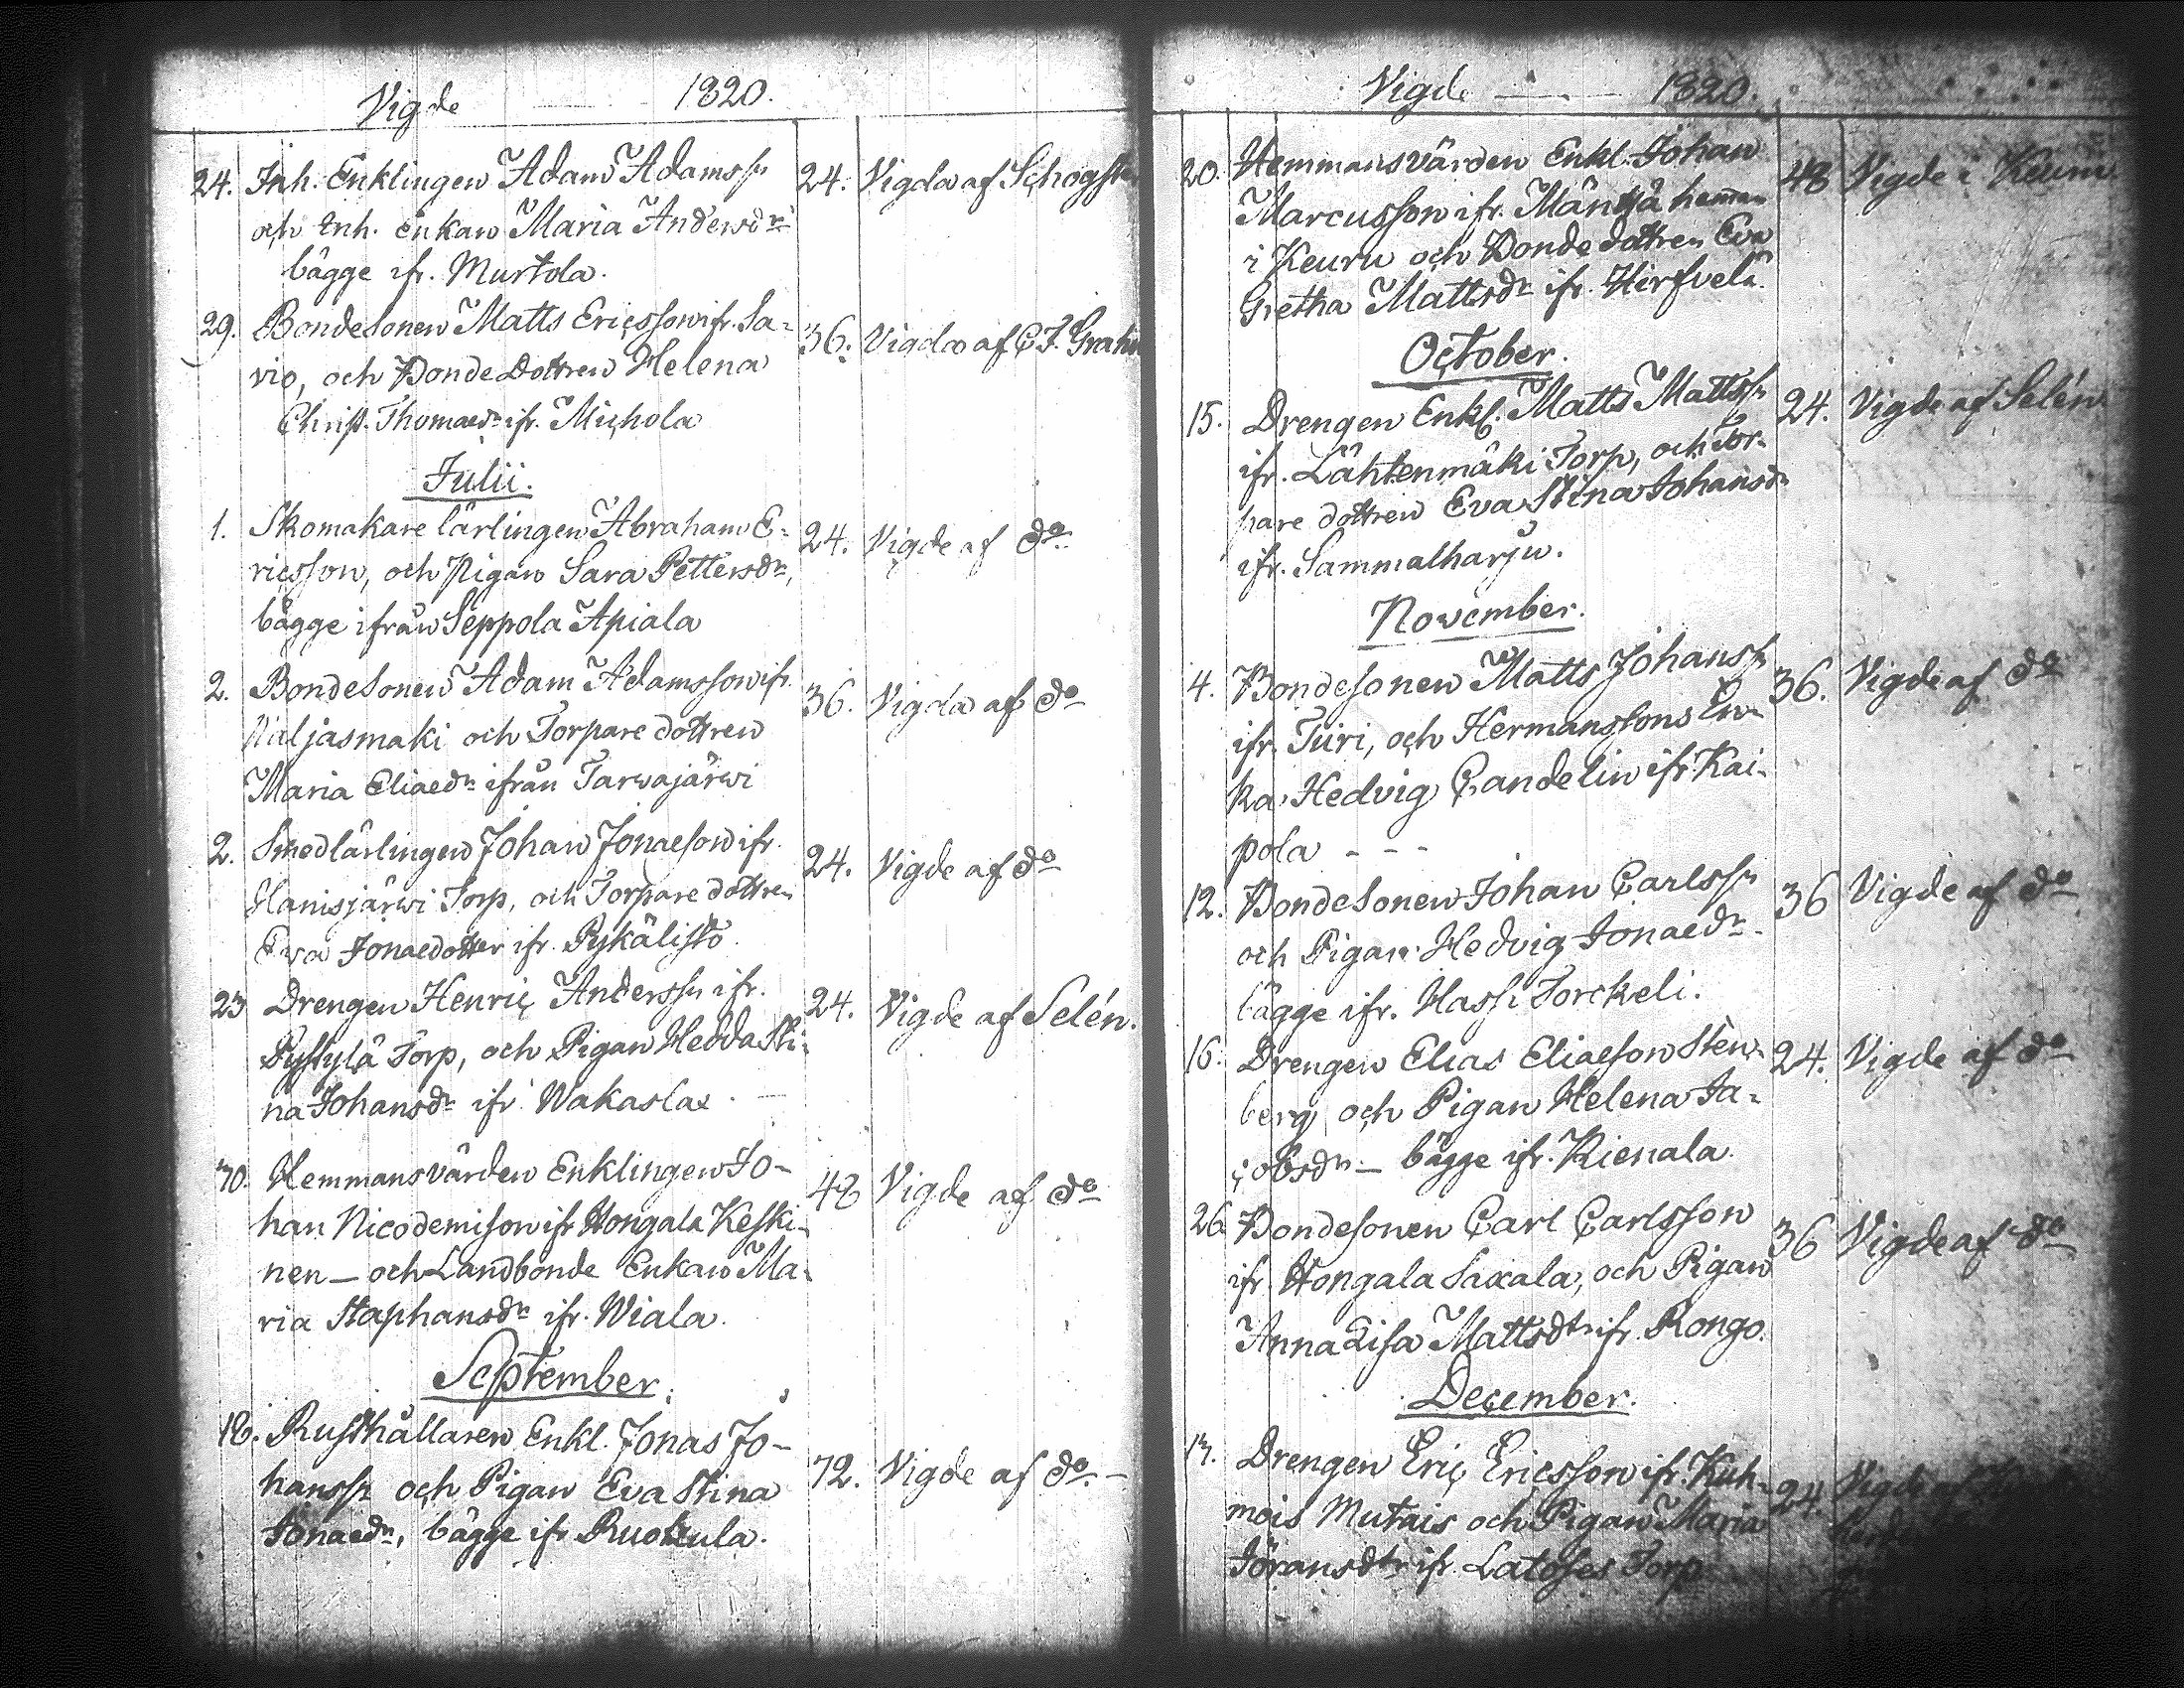 Vigde 1820.
24. Inh. Enklingen Adam Adamss:n 24. Vigda af Schogst
och Inh. Enkan Maria Andersdr
bägge ifr. Murtola.
29. Bondesonen Matts Ericsson ifr. Sa- 36. Vigda af C F. Grahn
vio, och Bonde Dottren Helena
Christ. Thomaedr ifr. Michola
Julii.
1. Skomakare lärlingen Abraham E- 24. Vigde af do
ricsson, och Pigan Sara Pettersdr,
bägge ifrån Seppola Apiala
2. Bondesonen Adam Adamsson ifr. 36. Vigda af do
och Torpare dottren
Maria Eliaedr ifrån Tarwajärwi
2. Smedlärlingen Johan Jonaeson ifr. 24. Vigde af do
Hanisjärwi Torp, och Torpare dottren
Eva Jonaedotter ifr. Pykälistö.
23 Drengen Henric Anderss:n ifr. 24. Vigde af Selén.
Torp, och Pigan Hedda Sti-
na Johansdr ifr. Wakasla.
30. Hemmansvärden Enklingen Jo- 48 Vigde af do
han Nicodemison ifr Hongala Keski-
nen — och Landbonde Enkan Ma-
ria Staphansdr ifr. Wiala.
September.
18. Rusthållaren Enkl. Jonas Jo- 72. Vigde af do. –
hanss:n och Pigan Eva Stina
Jonaedr, bägge ifr Ruokula.
Vigde 1820.
20. Hemmansvärden Enkl. Johan 48 Vigde i Keuru
Marcusson ifr. Mänttä hem̄an
i Keuru och Bonde dottren Eva
Gretha Mattsdr ifr. Hirfvelä.
October.
15. Drengen Enkl. Matts Mattss:n 24. Vigde af Selén
ifr. Lähtenmäki Torp, och Tor-
pare dottren Eva Stina Johansdr
ifr. Sammalharju.
November.
4. Bondesonen Matts Johanss:n 36. Vigde af do
ifr. Turi, och Hermanssons En-
ka Hedvig Candelin ifr. Kai-
pola - - -
12. Bondesonen Johan Carlss:n 36 Vigde af do
och Pigan Hedvig Jonaedr.
bägge ifr. Hassi Torckeli.
16. Drengen Elias Eliaeson Sten- 24. Vigde af do
berg, och Pigan Helena Ja-
cobsdr — bägge ifr. Rienala.
26 Bondesonen Carl Carlsson 36 Vigde af do
ifr. Hongala Saxala, och Pigan
Anna Lisa Mattsdtr ifr. Rongo.
December.
Drengen Eric Ericsson ifr. Kuh- 24. Vigde af
mois Mutais och Pigan Maria
Göransdtr ifr. Latoses Torp